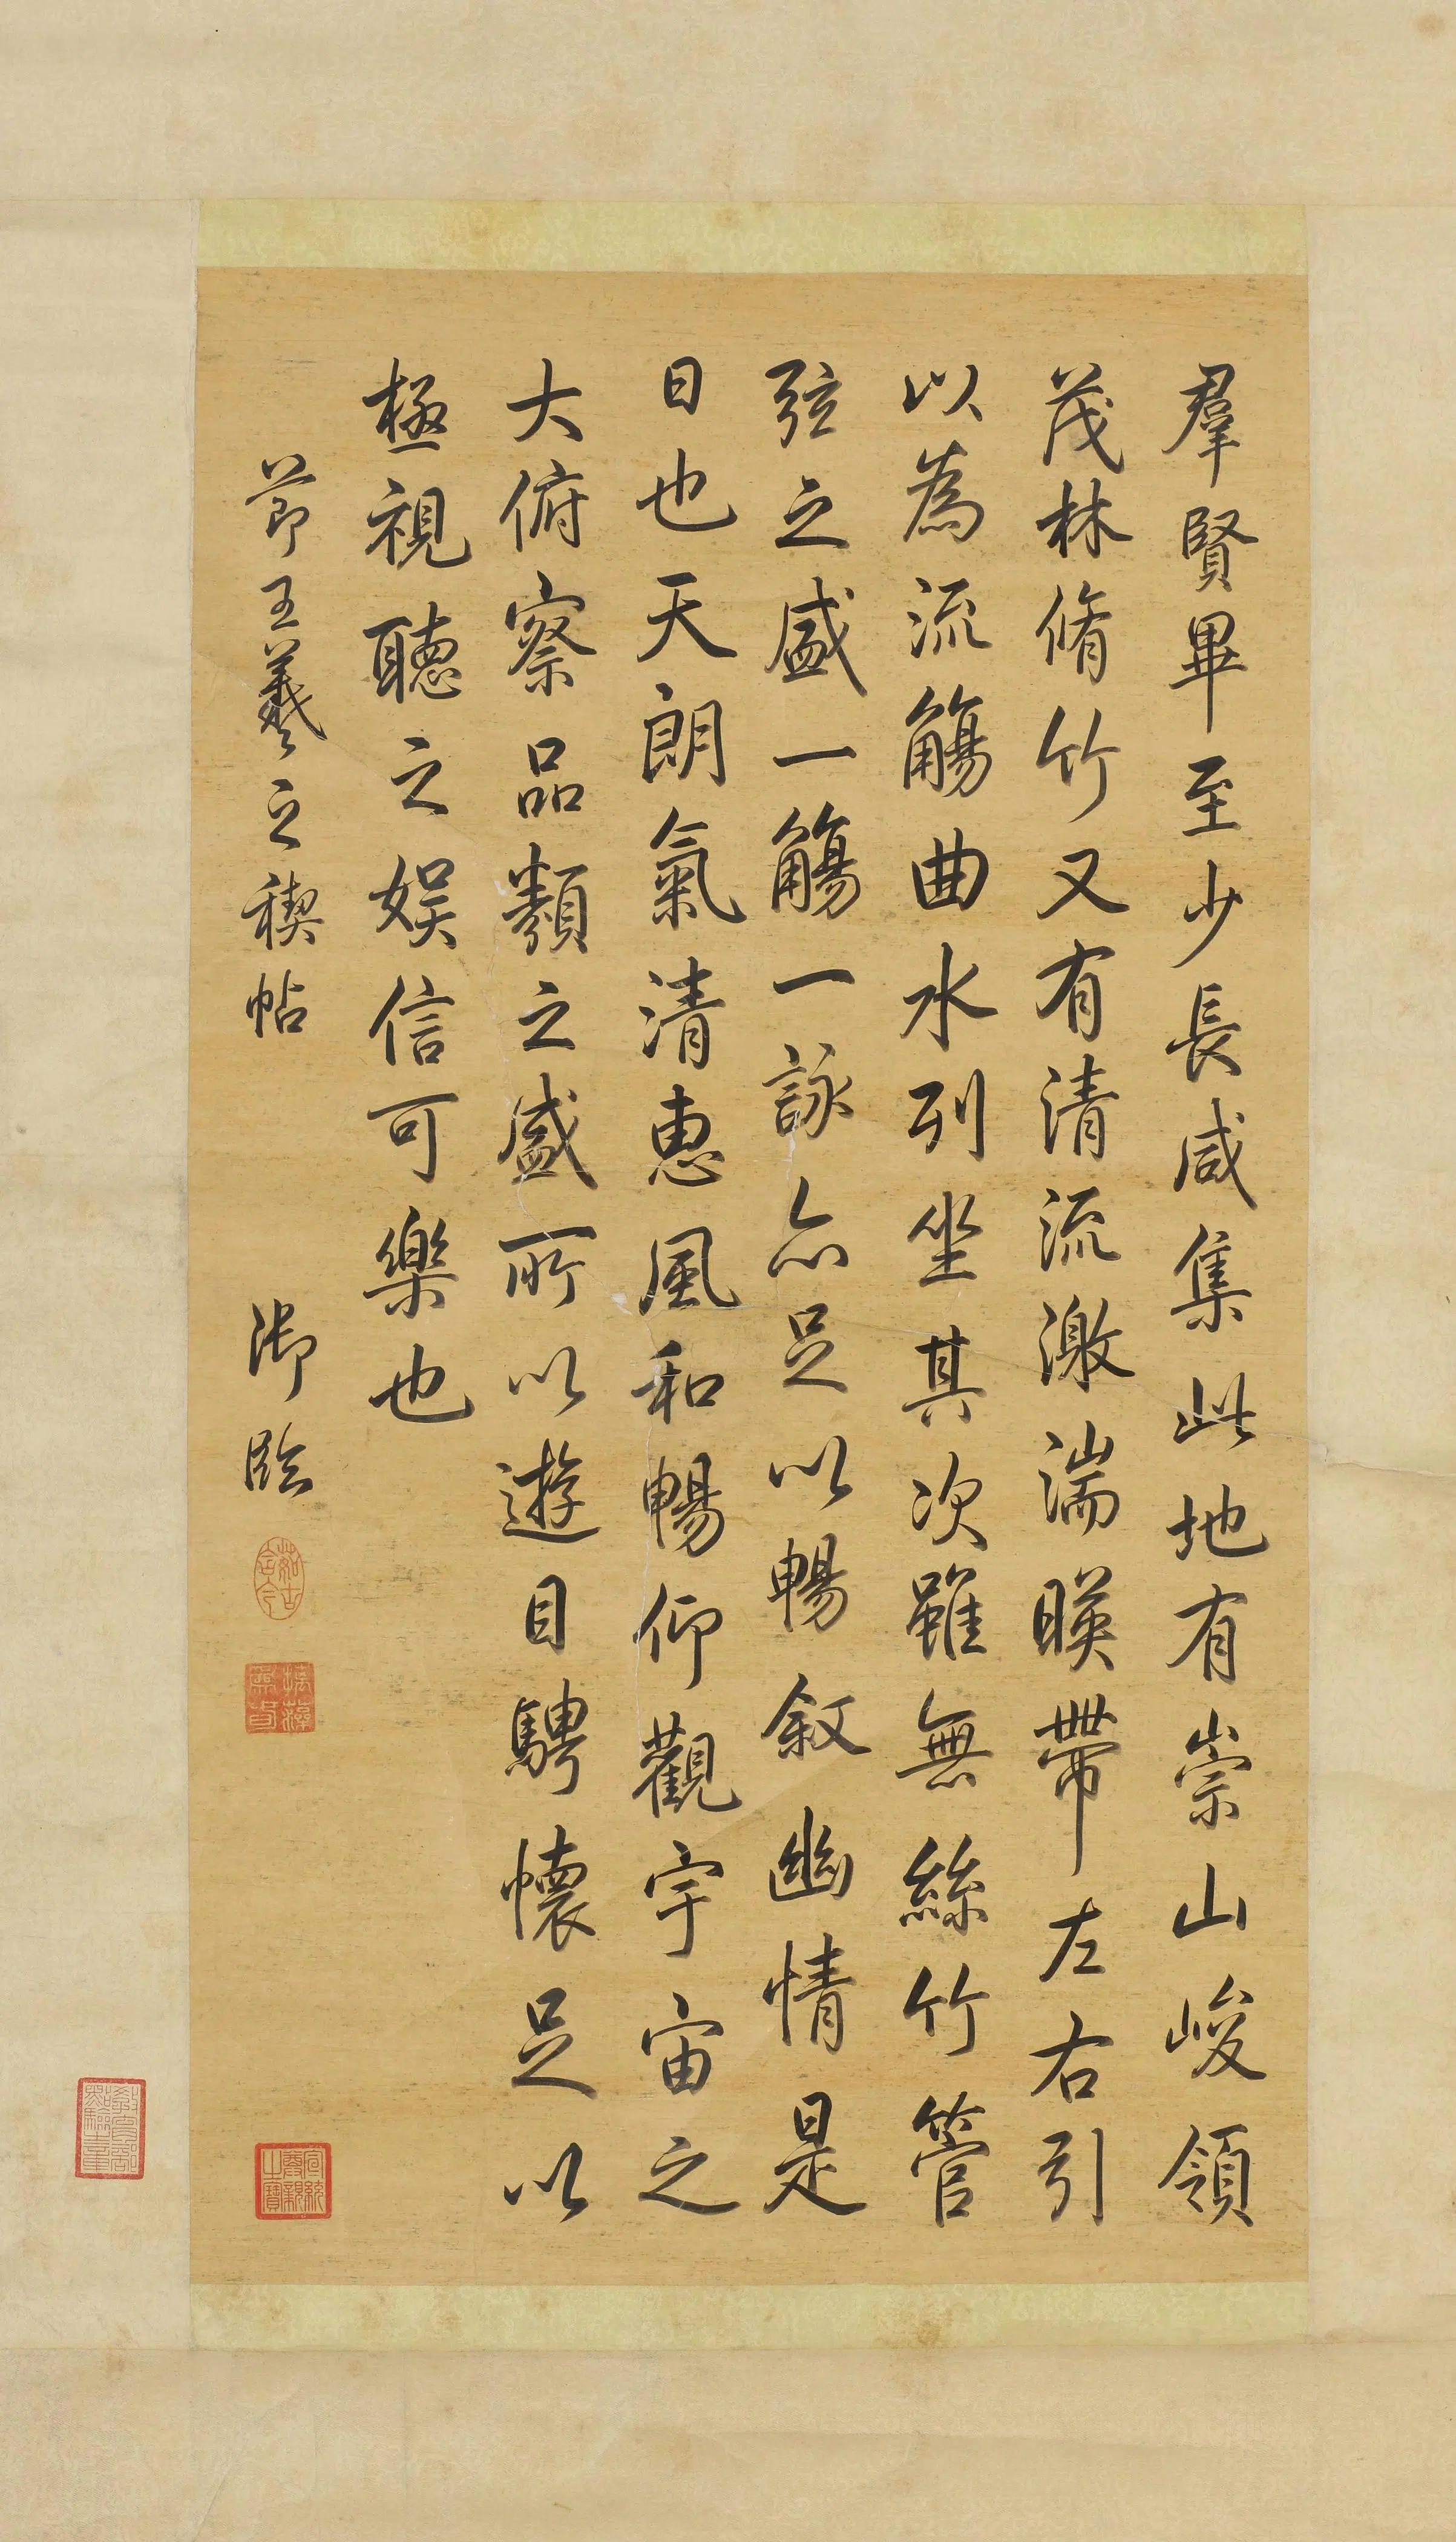 羣賢畢至少長咸集此地有崇山峻領
茂林脩竹又有清流激湍暎帶左右引
以為流觴曲水列坐其次雖無絲竹管
弦之盛一觴一詠亦足以暢敘幽情是
日也天朗氣清惠風和暢仰觀宇宙之
大俯察品類之盛所以遊目騁懷足以
極視聽之娛信可樂也
節王羲之稧帖
御臨
茹古含今
摛藻為春
宣統尊親之寶
教育部點驗之章